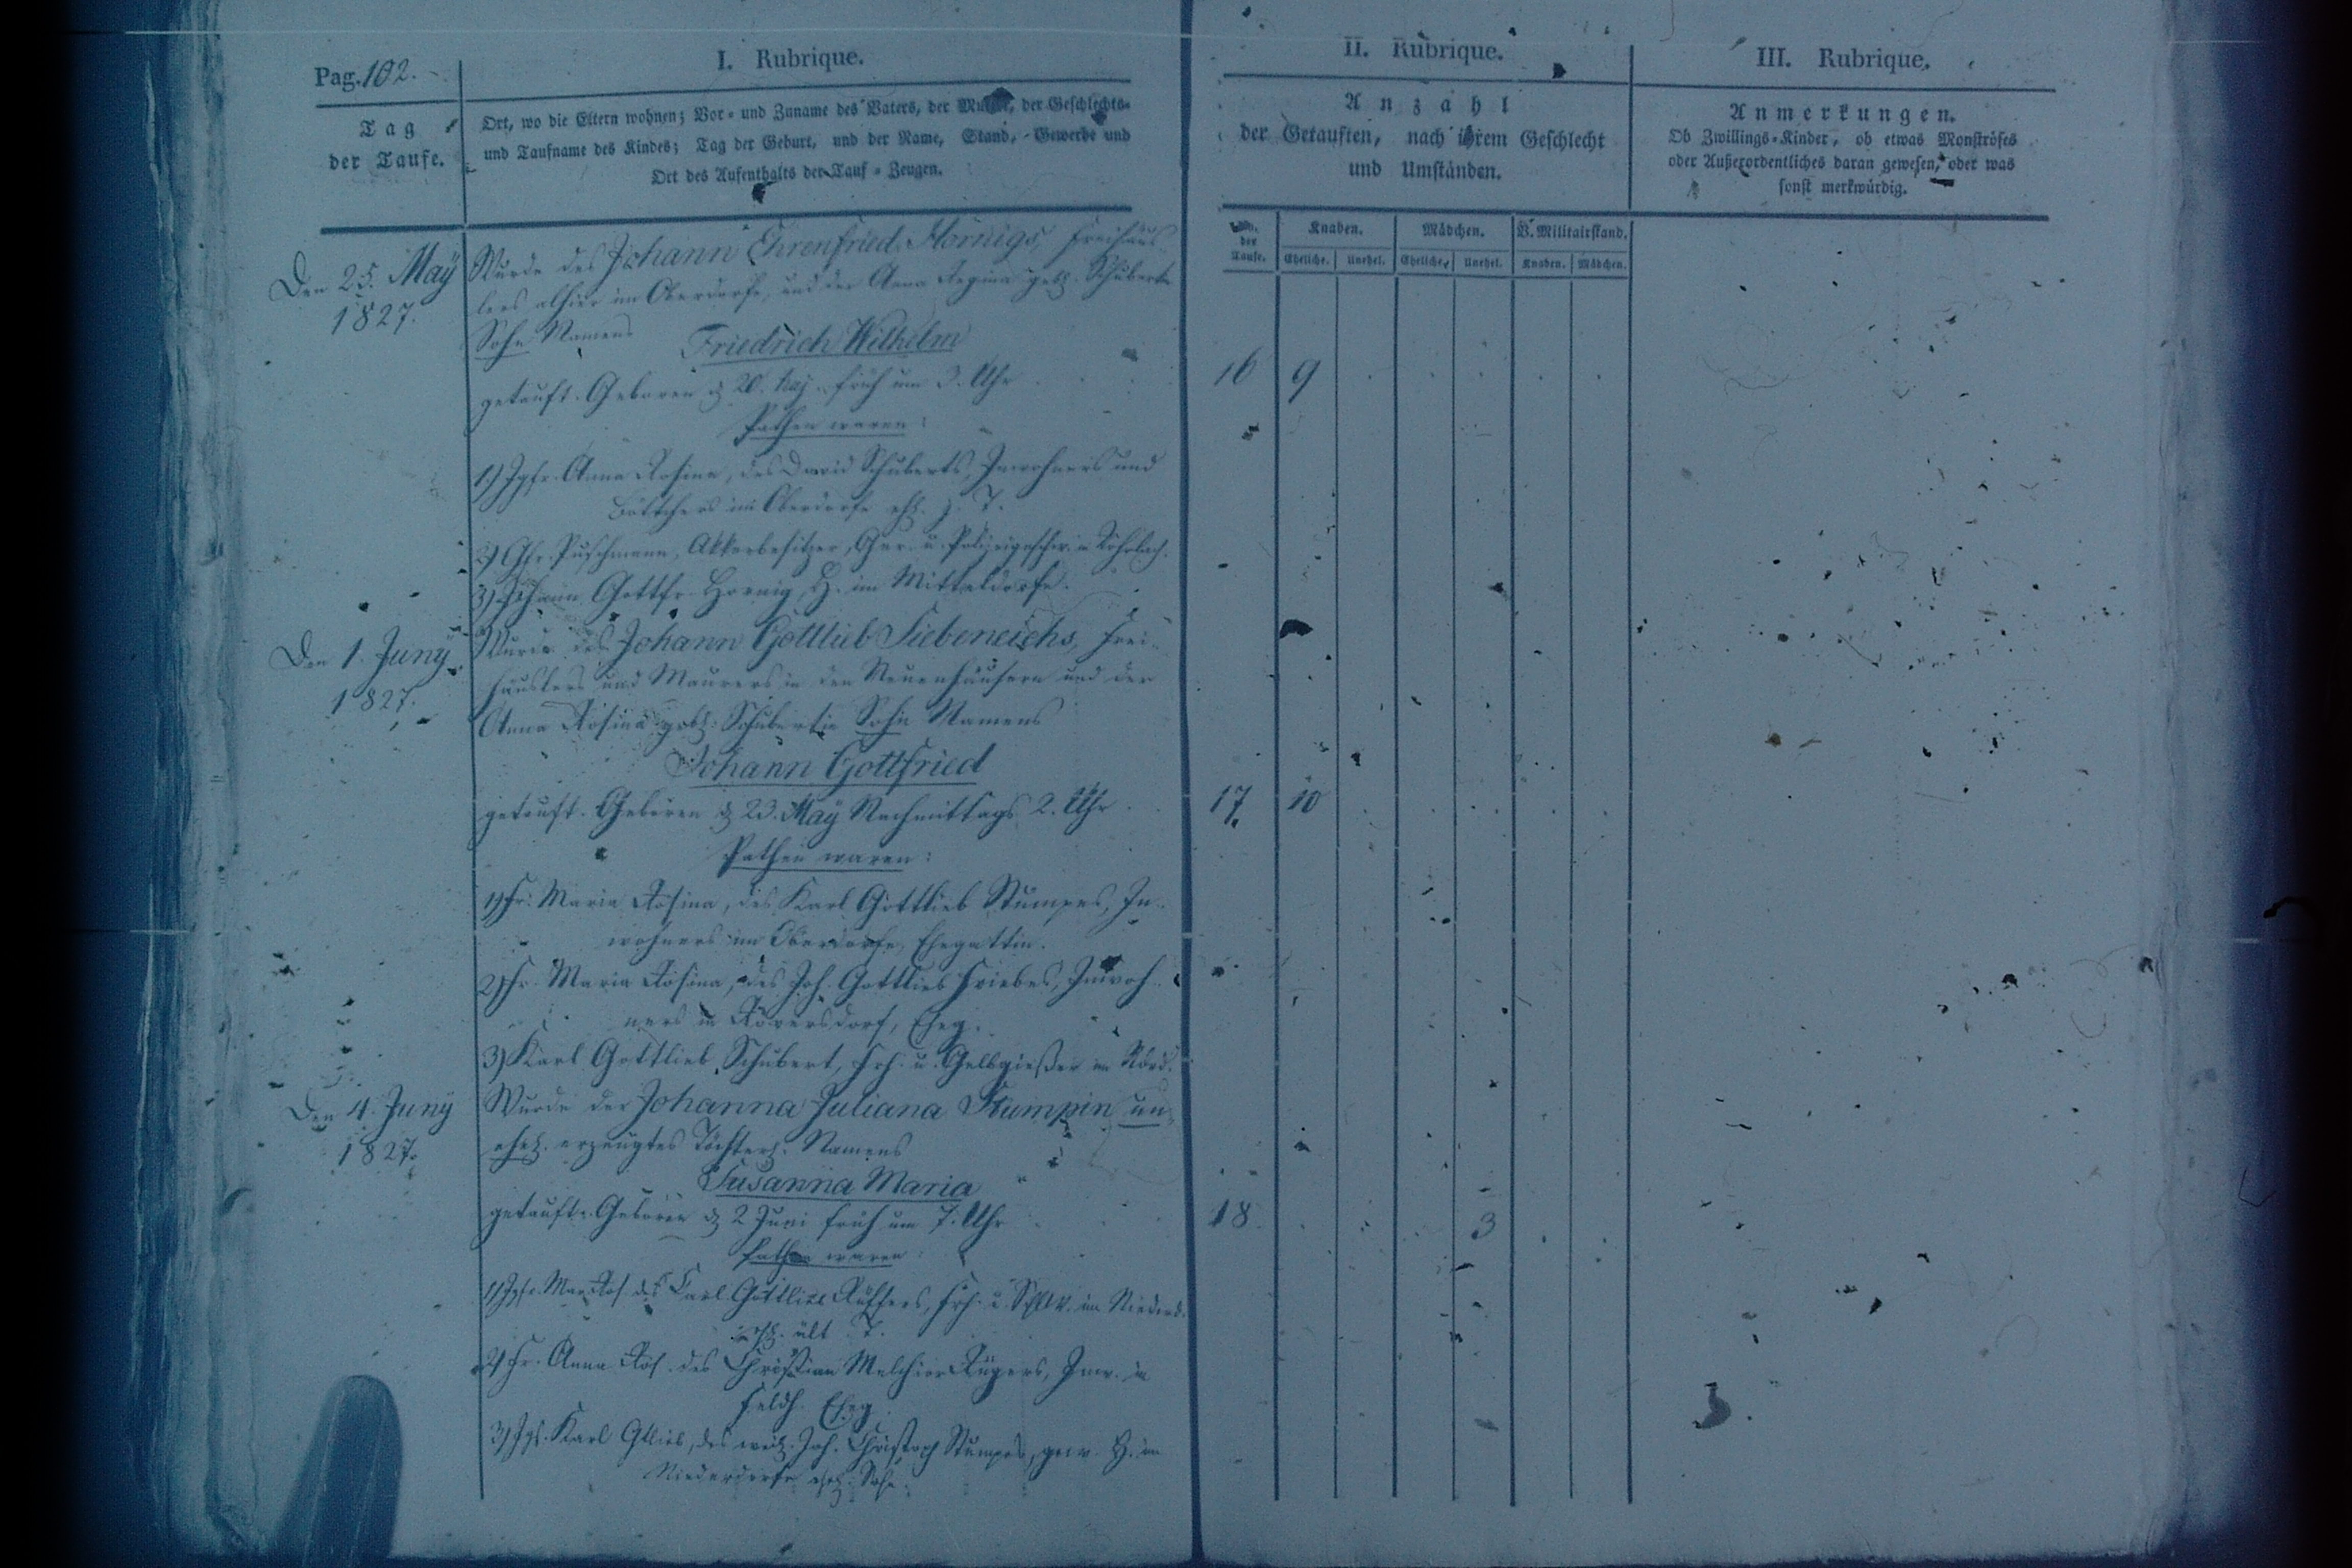 Pag. 102.
I. Rubrique.
Tag
der Taufe.
Ort, wo die Eltern wohnen; Vor- und Zuname des Vaters, der Mutter, der Geschlechts-
und Taufname des Kindes; Tag der Geburt, und der Name, Stand, Gewerbe und
Ort des Aufenthalts der Tauf-Zeugen.
Den 25. May
1827.
Wurde des Johann Ehrenfried Hornigs, Freihäus-
lers alhier im Oberdorfe, und der Anna Regina geb. Schubert
Sohn Namens
Friedrich Wilhelm
getauft. Geboren d. 20. May früh um 3. Uhr
Pathen waren:
1) Jgfr. Anna Rosina, des David Schuberts, Inwohners und
Böttchers im Oberdorfe ehl. j. T.
2) Puschmann, Akkerbesitzer, Ger. u.
3) Johann Gottfr. Hornig, H. im Mitteldorfe.
Den 1. Juny
1827.
Wurde des Johann Gottlieb Siebeneichs, Frei-
häuslers und Maurers in den Neuenhäusern und der
Anna Rosina geb. Schubertin Sohn Namens
Johann Gottfried
getauft. Geboren d. 23. May Nachmittags 2. Uhr
Pathen waren:
1) Fr. Maria Rosina, des Karl Gottlieb Stumpes, In-
wohners im Oberdorfe, Ehegattin.
2) Fr. Maria Rosina, des Joh. Gottlieb Friebes, Inwoh-
ners in Röversdorf, Eheg.
3) Karl Gottlieb Schubert, Frh. u. Gelbgießer im
Den 4. Juny
1827.
Wurde der Johanna Juliana Stumpin un-
ehel. erzeugtes Töchterl. Namens
Susanna Maria
getauft. Geboren d. 2 Juni früh um 7. Uhr
Pathen waren:
1) Jgfr. Mar. Ros. des Carl Gottlieb Frh. u. im Niederd.
ehl. ält. T.
2) Fr. Anna Ros. des Christian Melchior Rügers, Inw. in
Feldh. Eheg.
3) Jgs. Karl Gllieb, des weil. Joh. Christoph Stumpes, gew. H. im
Niederdorfe ehel. Sohn.
II. Rubrique.
Anzahl
der Getauften, nach ihrem Geschlecht
und Umständen.
der
Taufe.
Knaben.
Mädchen.
V. Militairstand.
Eheliche. Unehel. Eheliche. Unehel. Knaben. Mädchen.
16 9
17. 10
18. 3
III. Rubrique.
Anmerkungen.
Ob Zwillings-Kinder, ob etwas Monströses
oder Außerordentliches daran gewesen, oder was
sonst merkwürdig.